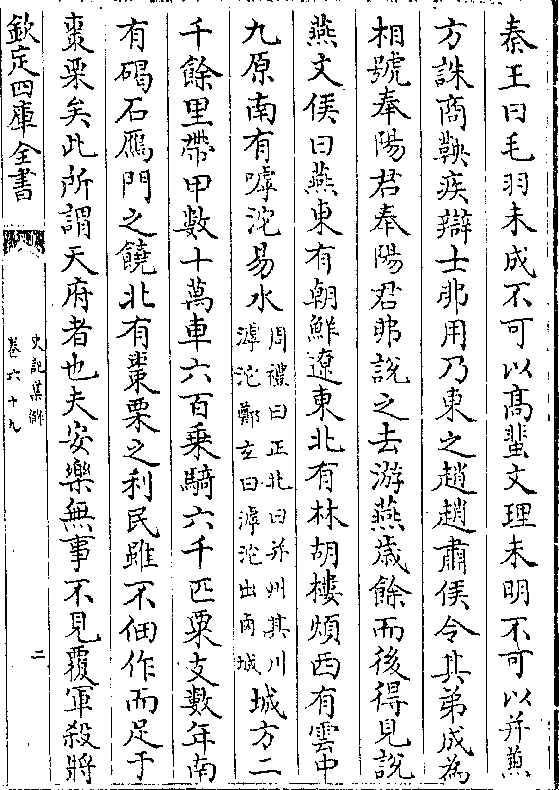 秦王曰毛羽未成不可以髙蜚文理未明不可以并兼
方誅商鞅疾辯士弗用乃東之趙趙肅侯令其弟成為
相號奉陽君奉陽君弗說之去游燕歳餘而後得見說
燕文侯曰燕東有朝鮮遼東北有林胡樓煩西有雲中
九原南有嘑沱易水周禮曰正北曰并州其川
滹沱鄭𤣥曰滹沱出鹵城城方二
千餘里帶甲數十萬車六百乗騎六千匹粟支數年南
有碣石鴈門之饒北有棗栗之利民雖不佃作而足于
棗栗矣此所謂天府者也夫安樂無事不見覆軍殺將
欽定四庫全書
史記集解
卷六十九
二